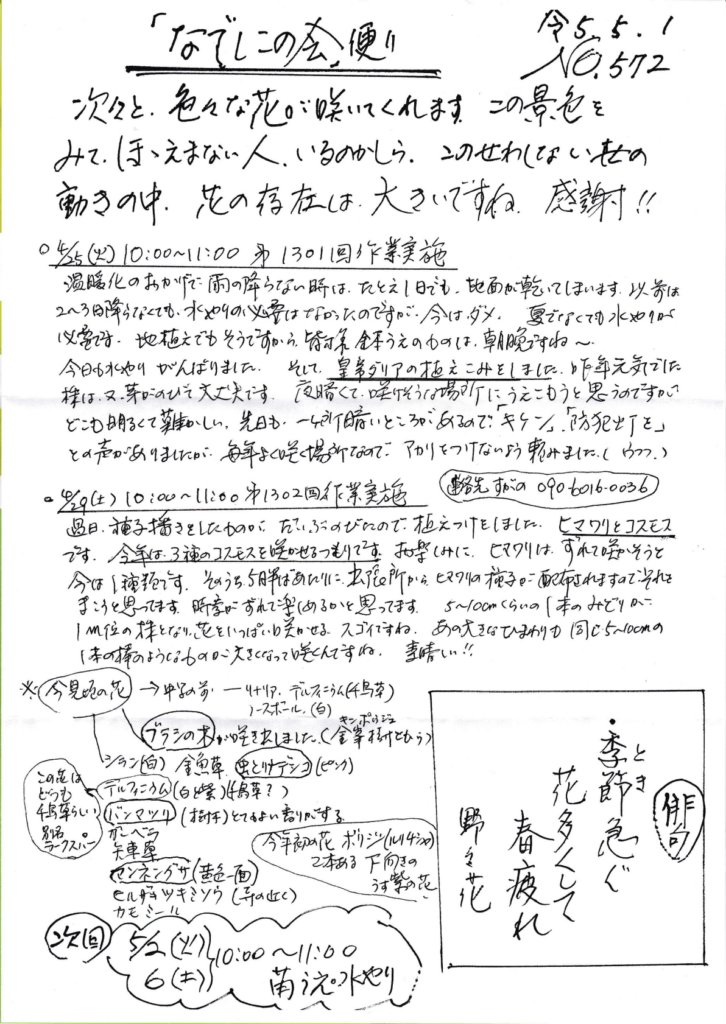 「なでしこの会」便り
令5.5.1
NO.572
次々と、色々な花が咲いてくれます。この景色を
みて、ほゝえまない人、いるのかしら。このせわしない世の
動きの中、花の存在は、大きいですね。感謝!!
○4/25(火)10:00~11:00 第1301回作業実施
温暖化のおかげで雨の降らない時は、たとえ1日でも、地面が乾いてしまいます。以前は
2~3日降らなくても、水やりの必要はなかったのですが、今はダメ。夏でなくても水やりが
必要です。地植えでもそうですから、皆様鉢うえのものは、朝晩ですね~
今日も水やりがんばりました。そして、皇帝ダリアの植えこみをしました。昨年元気でした
株は、又、芽がのびて大丈夫です。夜暗くて、咲けそうな場所にうえこもうと思うのですが、
どこも明るくて難かしい。先日も、一ヶ所暗いところがあるので「キケン」、「防犯灯を」
との声がありましたが、毎年よく咲く場所なので、アカリをつけないよう頼みました。(ウフフ。)
○4/29(土)10:00~11:00 第1302回作業実施
連絡先 すがの 090-6016-0036
過日、種子播きをしたものが、だいぶのびたので、植えつけをしました。ヒマワリとコスモス
です。今年は、3種のコスモスを咲かせるつもりです。お楽しみに。ヒマワリは、ずれて咲かそうと
今は1種類です。そのうち5月半ばあたりに、出張所からヒマワリの種子が配布されますのでそれを
まこうと思ってます。時季がずれて楽しめるかと思ってます。5~10cmくらいの1本のみどりが、
1m位の株となり、花をいっぱい咲かせる。スゴイですね。あの大きなひまわりも同じ5~10cmの
1本の棒のようなものが大きくなって咲くんですね。素晴しい!!
※今見頃の花→中学の前 ーリナリア、デルフィニウム(千鳥草)
ノースポール、(白)
ブラシの木が咲き出しました。(金宝樹ともいう)
キンポウジュ
シラン(白) 金魚草、虫とりナデシコ(ピンク)
デルフィニウム(白と紫)(千鳥草?)
この花は
どうも
千鳥草らしい
別名
ラークスパー
バンマツリ(樹木)とてもよい香りがする
ガーベラ
矢車草
マンネングサ(黄色一面)
ヒルザキツキミソウ(寺の近く)
カモミール
今年初の花 ボリジ(ルリヂシャ)
2本ある 下向きの
うす紫の花
次回
5/2(火)
6(土)
10:00~11:00
苗うえ。水やり
俳句
・季節急ぐ
とき
花多くして
春疲れ
野々花